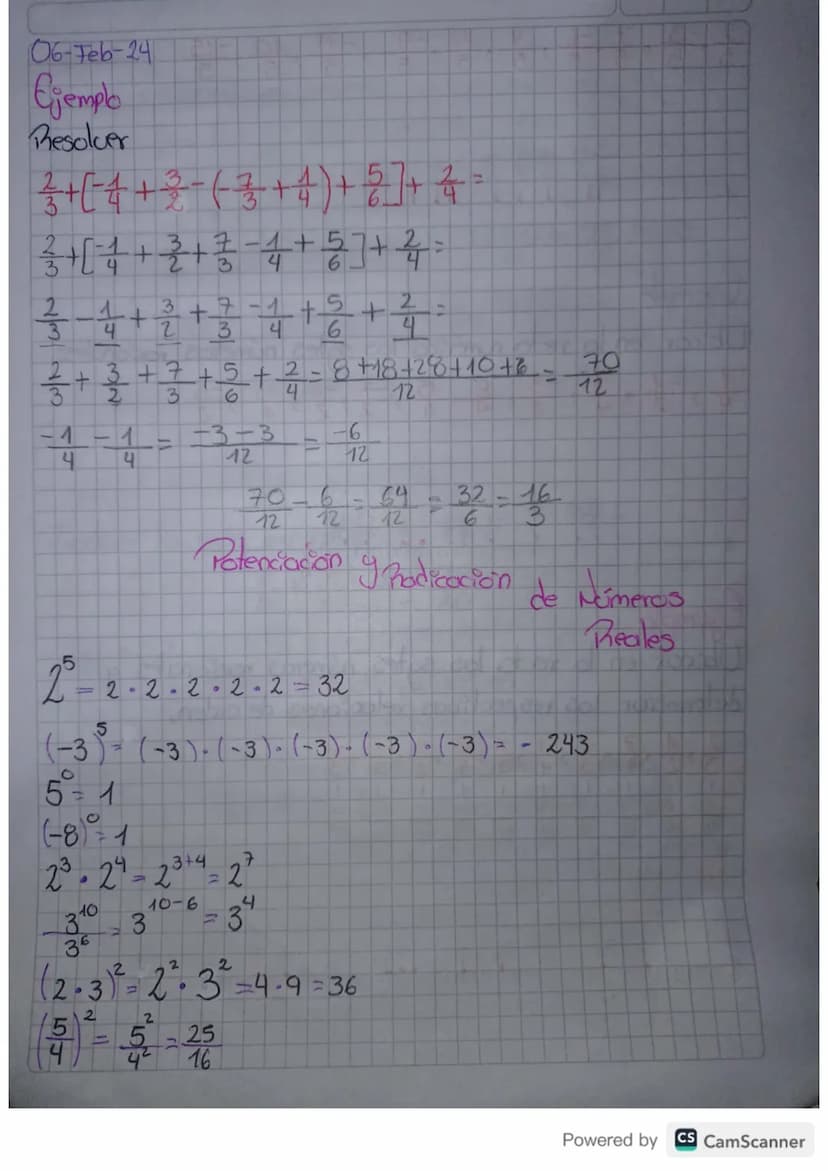 06-Feb-24
Ejemplo
Resolver
2/3 + [-1/4 + 3/2 - (-7/3 + 1/4) + 5/6] + 2/4 =
2/3 + [-1/4 + 3/2 + 7/3 - 1/4 + 5/6] + 2/4 =
2/3 - 1/4 + 3/2 + 7/3 - 1/4 + 5/6 + 2/4 =
2/3 + 3/2 + 7/3 + 5/6 + 2/4 = 8+18+28+10+6/12 = 70/12
-1/4 - 1/4 = -3-3/12 = -6/12
70/12 - 6/12 = 64/12 = 32/6 = 16/3
Potenciación y Radicación de Números
Reales
2⁵ = 2 · 2 · 2 · 2 · 2 = 32
(-3)⁵ = (-3) · (-3) · (-3) · (-3) · (-3) = - 243
5⁰ = 1
(-8)⁰ = 1
2³ · 2⁴ = 2³⁺⁴ = 2⁷
3¹⁰/3⁶ = 3¹⁰⁻⁶ = 3⁴
(2 · 3)² = 2² · 3² = 4 · 9 = 36
(5/4)² = 5²/4² = 25/16
Powered by CS CamScanner